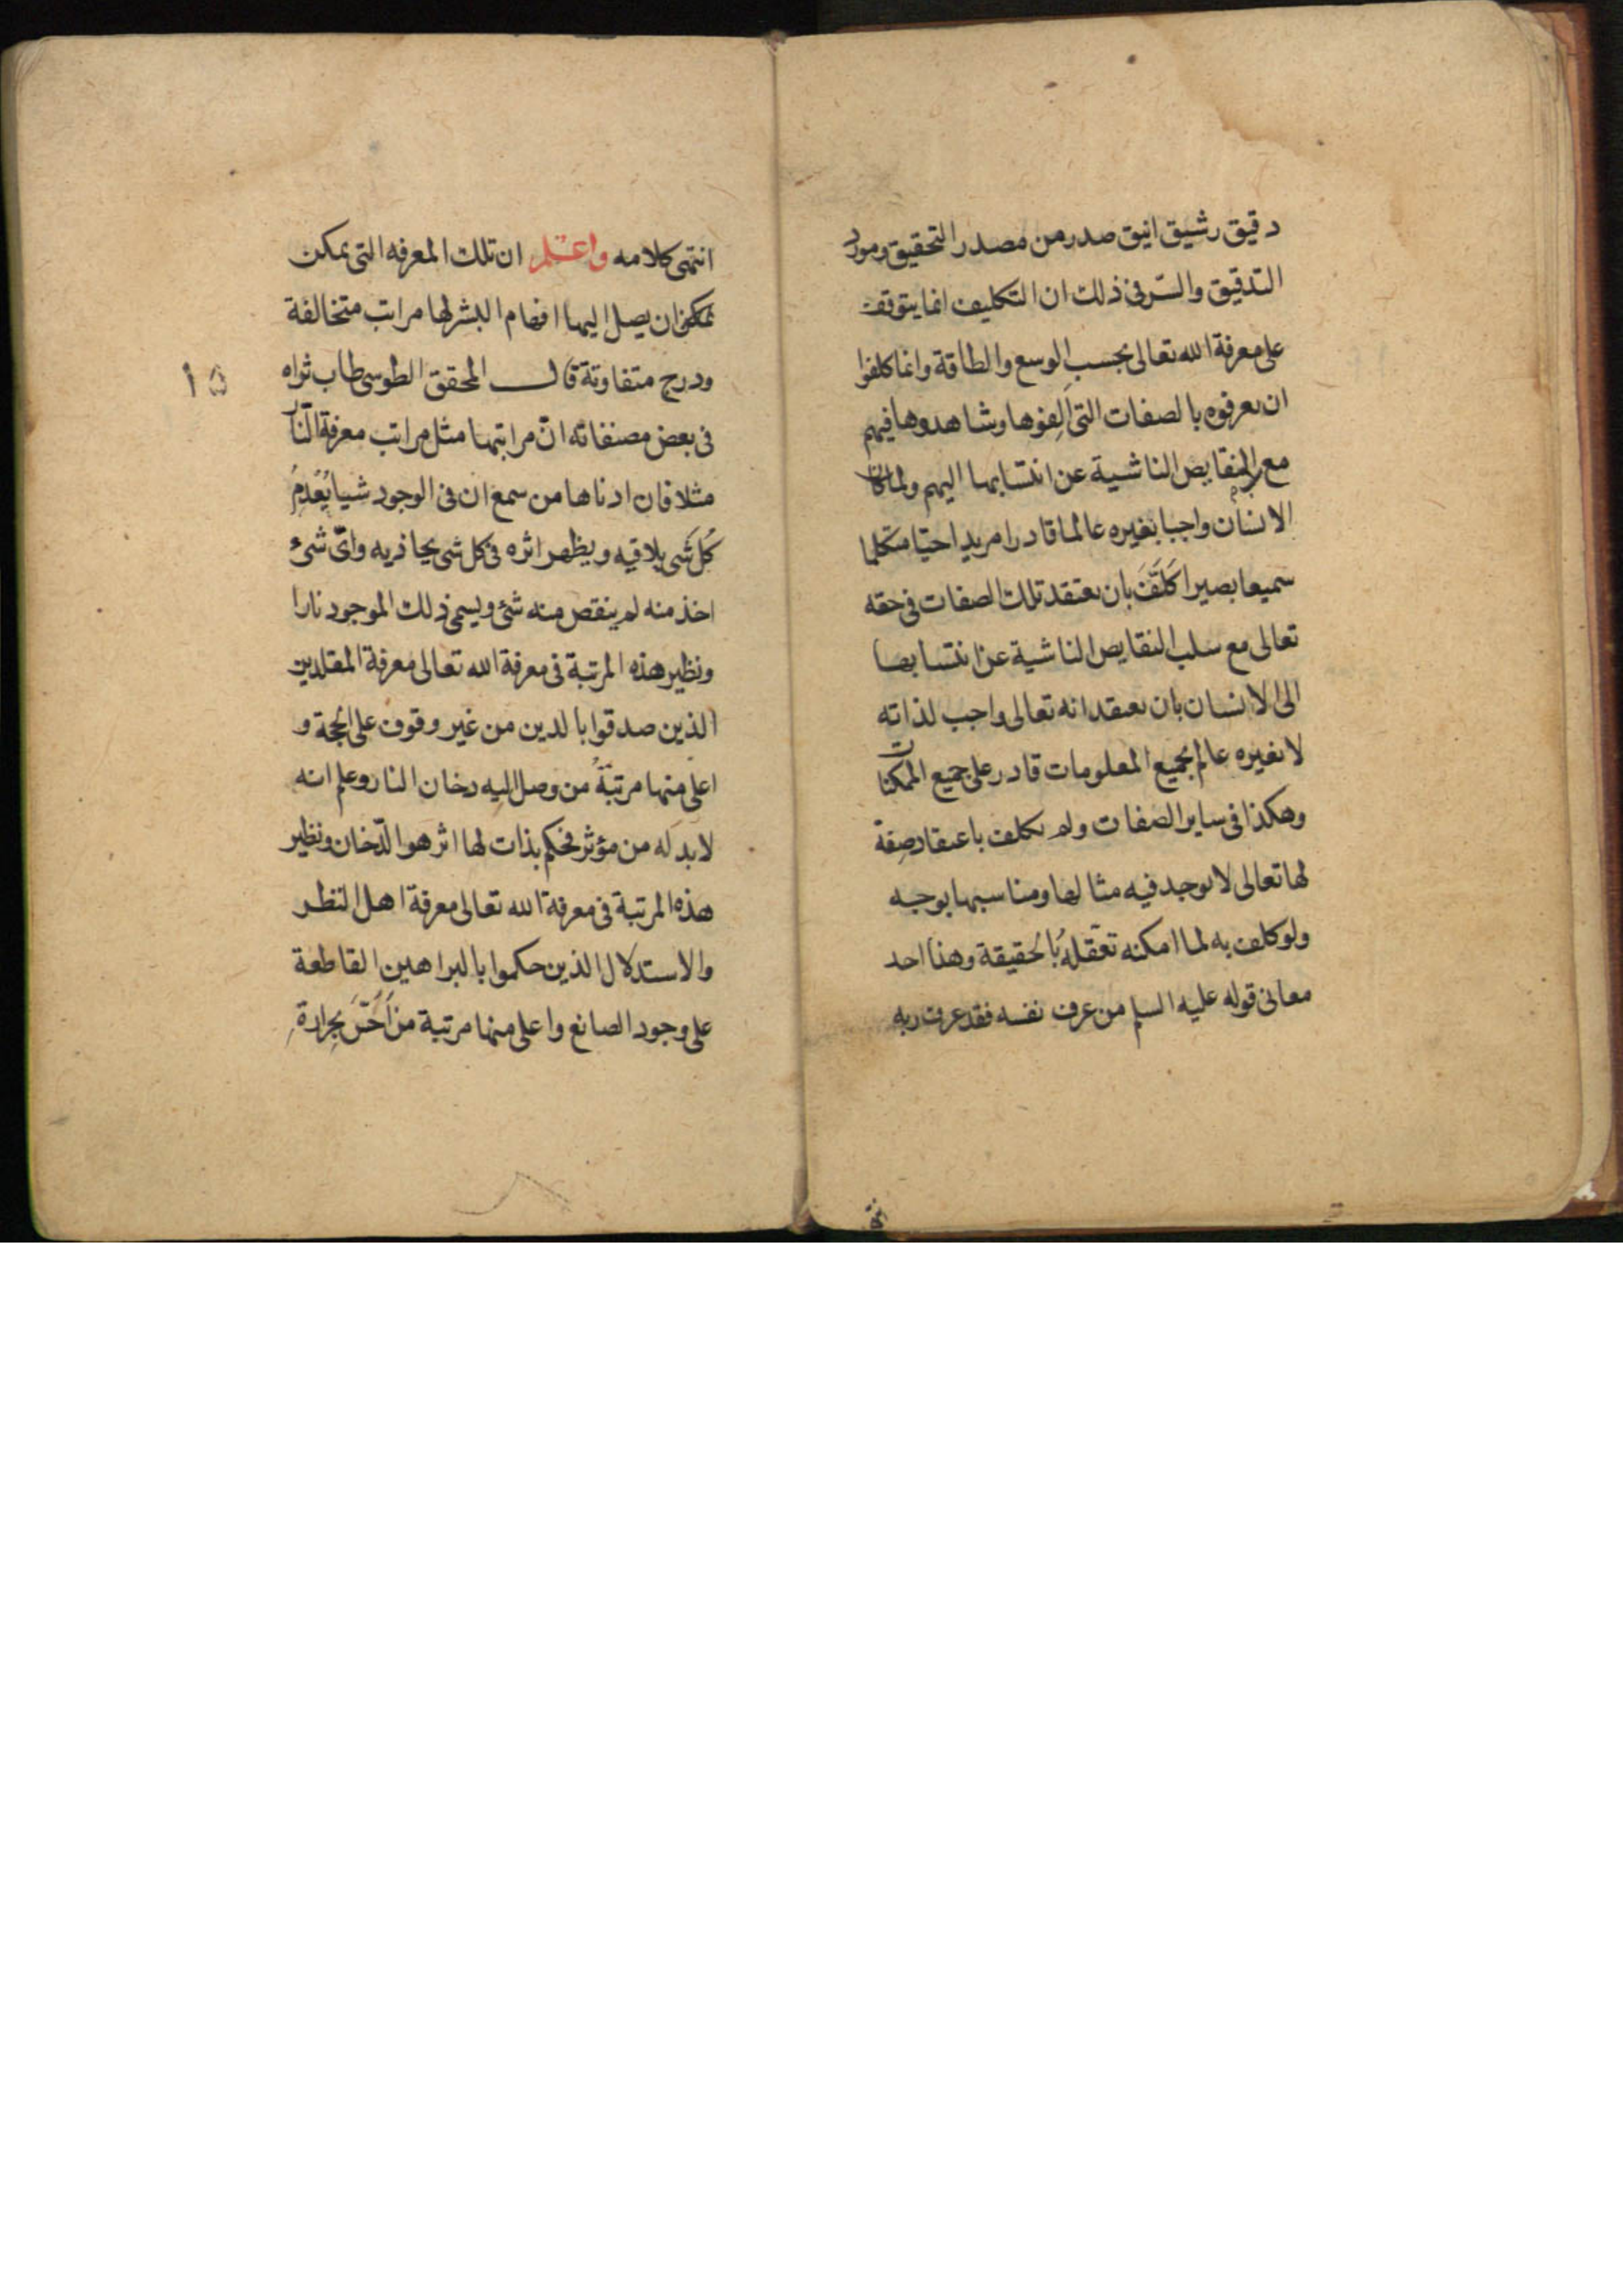 دقيق رشيق انيق صدر من مصدر التحقيق ومورد
التدقيق والسّر فى ذلك ان التكليف انما يتوقف
على معرفة الله تعالى بحسب الوسع والطاقة وانما كلفوا
ان يعرفوه بالصفات التى الِفوها وشاهدوها فيهم
مع النقايص الناشية عن انتسابها اليهم ولما كان
الانسان واجبا بغيره عالما قادرا مريدا حيّا متكلما
سميعا بصيرا كَلَّفَ بان يعتقد تلك الصفات فى حقه
تعالى مع سلب النقايص الناشية عن انتسابها
الى الانسان بان يعتقد انه تعالى واجب لذاته
لا بغيره عالم بجميع المعلومات قادر على جميع الممكنات
وهكذا فى ساير الصفات ولم يكلف باعتقاد صفة
لها تعالى لا يوجد فيه مثالها ومناسبها بوجه
ولو كلف به لما امكنه تعقّله بالحقيقة وهذا احد
معانى قوله عليه السلم من عرف نفسه فقد عرف ربه
انتهى كلامه واعلم ان تلك المعرفه التى يمكن
يمكن ان يصل اليها افهام البشر لها مراتب متخالفة
ودرج متفاوتة قال المحقق الطوسى طاب ثراه
١٥
فى بعض مصنفاته انّ مراتبها مثل مراتب معرفة النّار
مثلا فان ادناها من سمع ان فى الوجود شيا يُعْدِمُ
كُلَّ شَى يلاقيه ويظهر اثره فى كل شى يحاذيه واىّ شئ
اخذ منه لم ينقص منه شئ ويسمى ذلك الموجود نارا
ونظير هذه المرتبة فى معرفة الله تعالى معرفة المقلدين
الذين صدقوا بالدين من غير وقوف على الحجة و
اعلى منها مرتبةً من وصل اليه دخان النار وعلم انه
لابد له من مؤثر فحكم بذات لها اثر هو الدّخان ونظير
هذه المرتبة فى معرفة الله تعالى معرفة اهل النظر
والاستدلال الذين حكموا بالبراهين القاطعة
على وجود الصانع واعلى منها مرتبة من اَحَسَّ بحرارةِ